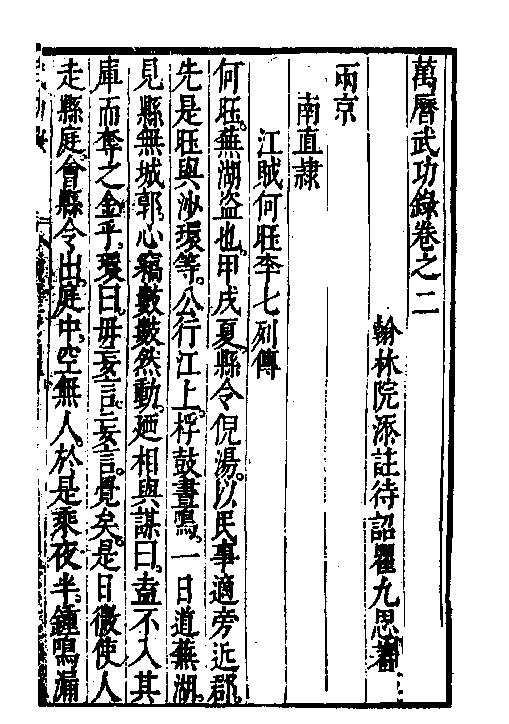 萬曆武功錄卷之二
翰林院添註待詔瞿九思著
兩京
南直隷
江賊何旺李七列傳
何旺。蕪湖盜也。甲戌夏。縣令倪湯。以民事適旁近郡。
先是旺與沙環等。公行江上。桴鼓晝鳴。一日道蕪湖。
見縣無城郭。心竊數數然動。廼相與謀曰。盍不入其
庫而奪之金乎。環曰。毋妄言。妄言。覺矣。是日微使人
走縣庭。會縣令出。庭中空無人。於是乘夜半。鍾鳴漏